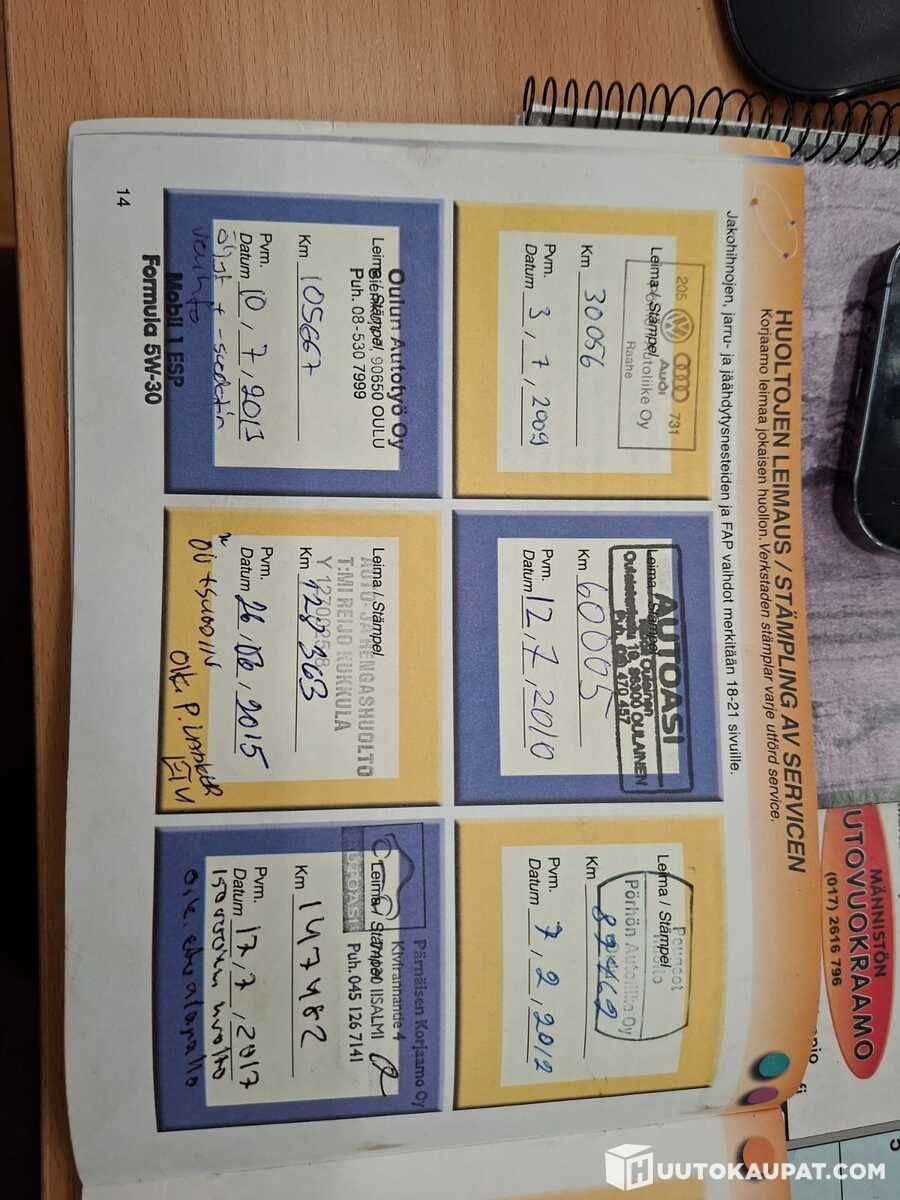 HUOLTOJEN LEIMAUS / STÄMPLING AV SERVICEN
Korjaamo leimaa jokaisen huollon. Verkstaden stämplar varje utförd service.
Jakohihnojen, jarru- ja jäähdytysnesteiden ja FAP vaihdot merkitään 18-21 sivuille.
205 731
Audi
Autoliike Oy
Raahe
Leima / Stämpel
Km 30056
Pvm.
Datum 3, 7, 2009
AUTOASI
Oulainen
86300 OULAINEN
Leima / Stämpel
Km 60005
Pvm.
Datum 12, 7, 2010
Peugeot
Huolto
Pörhön Autoliike Oy
Leima / Stämpel
Km 89462
Pvm.
Datum 7, 2, 2012
Oulun Autotyö Oy
90650 OULU
Puh. 08-530 7999
Leima / Stämpel
Km 105667
Pvm.
Datum 10, 7, 2013
öljyt + suodatin
vaihto
Mobil 1 ESP
Formula 5W-30
AUTO- JA RENGASHUOLTO
T:MI REIJO KUKKULA
Leima / Stämpel
Km 128363
Pvm.
Datum 26, 2015
Pärnäisen Korjaamo Oy
Kivirannantie 4
IISALMI
Puh. 045 126 7141
AUTOASI
Leima / Stämpel
Km 147482
Pvm.
Datum 17, 7, 2017
150000km huolto
oik. etu alapallo
14
MÄNNISTÖN
UTOVUOKRAAMO
(017) 2616 796
5
HUUTOKAUPAT.COM